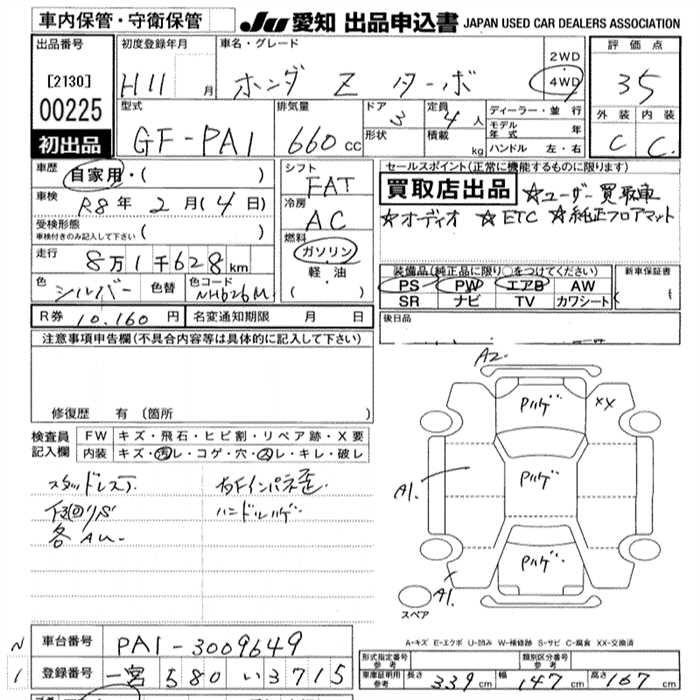 車内保管・守衛保管 JU 愛知 出品申込書 JAPAN USED CAR DEALERS ASSOCIATION
出品番号 初度登録年月 車名・グレード 評価点
[2130] H11 月 ホンダ Z ターボ 2WD 4WD 35
00225 型式 排気量 ドア 3 定員 4人 ディーラー・並行 外装 内装
初出品 GF-PA1 660cc 形状 積載 kg モデル年式 年 C C
ハンドル 左・右
車歴 自家用・( ) シフト FAT セールスポイント(正常に機能するものに限ります)
車検 R8年 2月(4日) 冷房 AC 買取店出品 ☆ユーザー買取車
受検形態 ☆オーディオ ☆ETC ☆純正フロアマット
車検付きのみ記入して下さい ( ) 燃料 ガソリン
走行 8万1千628km 軽油 装備品(純正品に限り○をつけてください) 新車保証書
色 シルバー 色替 色コード NH626M ( ) PS PW エアB AW
SR ナビ TV カワシート
R券 10,160円 名変通知期限 月 日 後日品
注意事項申告欄(不具合内容等は具体的に記入して下さい)
修復歴 有 (箇所 )
検査員記入欄 FW キズ・飛石・ヒビ割・リペア跡・X要
内装 キズ・汚レ・コゲ・穴・スレ・キレ・破レ
スタッドレス
ハンドルハゲ
各AU
A2
Pハゲ XX
A1 Pハゲ
Pハゲ
A1
スペア
A-キズ E-エクボ U-凹み W-補修跡 S-サビ C-腐食 XX-交換済
N 車台番号 PA1-3009649 形式指定番号 参考 類別区分番号 参考
1 登録番号 一宮 580 い 3715 車庫証明用 参考 長さ 339cm 幅 147cm 高さ 167cm